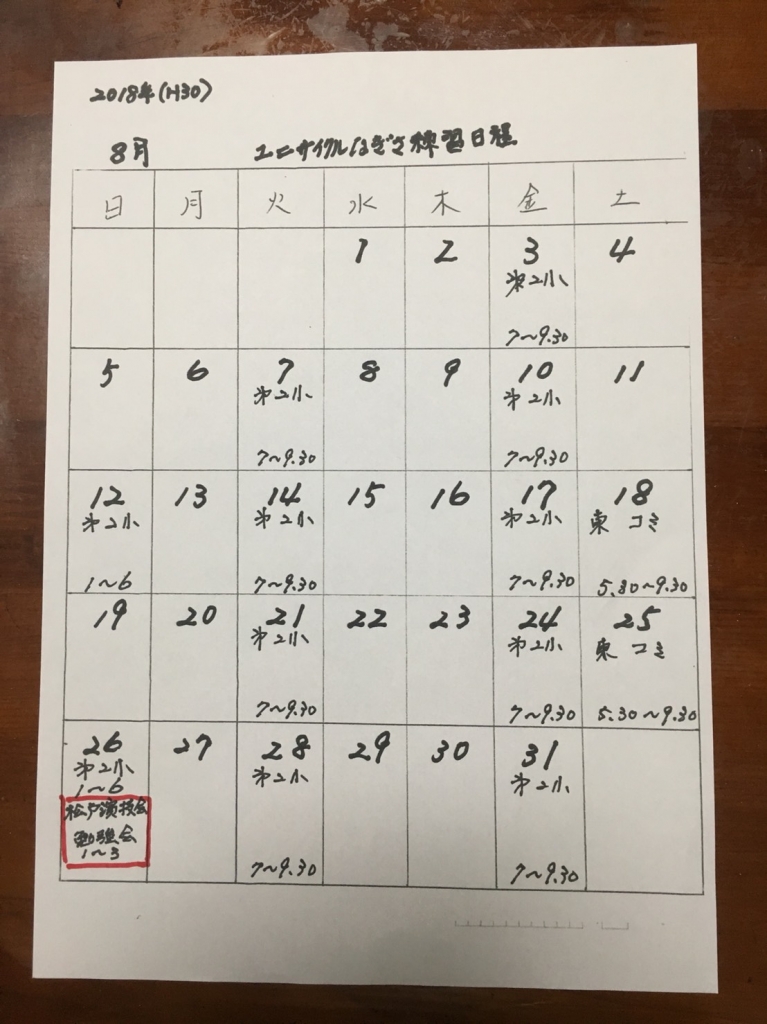 2018年(H30)
8月 ユニサイクルはぎさ練習日程
日 月 火 水 木 金 土
1 2 3 4
第2小
7〜9.30
5 6 7 8 9 10 11
第2小 第2小
7〜9.30 7〜9.30
12 13 14 15 16 17 18
第2小 第2小 第2小 東コミ
1〜6 7〜9.30 7〜9.30 5.30〜9.30
19 20 21 22 23 24 25
第2小 第2小 東コミ
7〜9.30 7〜9.30 5.30〜9.30
26 27 28 29 30 31
第2小 第2小 第2小
1〜6
松戸演技会
勉強会
1〜3
7〜9.30 7〜9.30